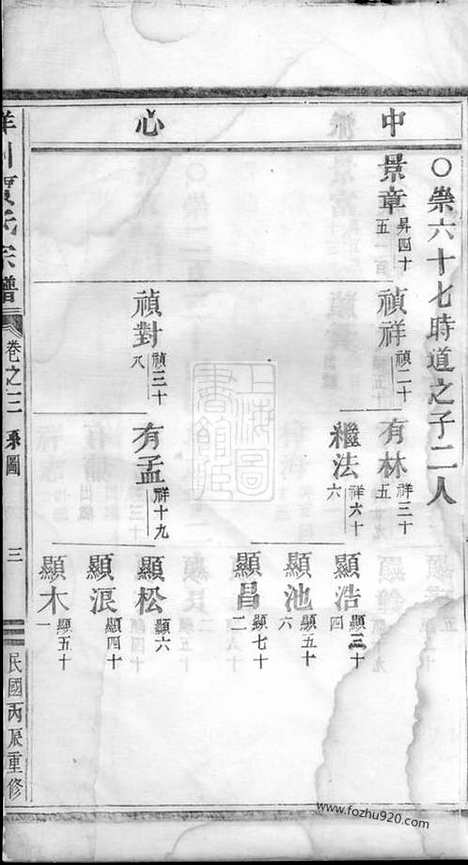 中心
○崇六十七時道之子二人
景章 昇四十五
禎祥 禎二十
禎對 禎三十八
有林 祥三十五
繼法 祥六十六
有孟 祥十九
顯浩 顯三十四
顯池 顯五十六
顯昌 顯七十二
顯松 顯六
顯泿 顯四十
顯木 顯五十一
川賈氏宗譜
卷之三 系圖
三
民國丙辰重修
上海圖書館藏
www.fozhu920.com